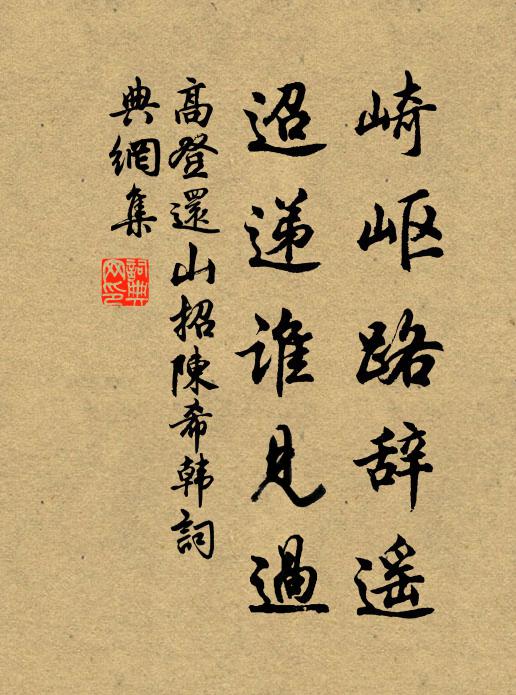 崎岖路辞遥
迢递谁见過
高登還山招陳希韩詞
典網集
詞典
网印